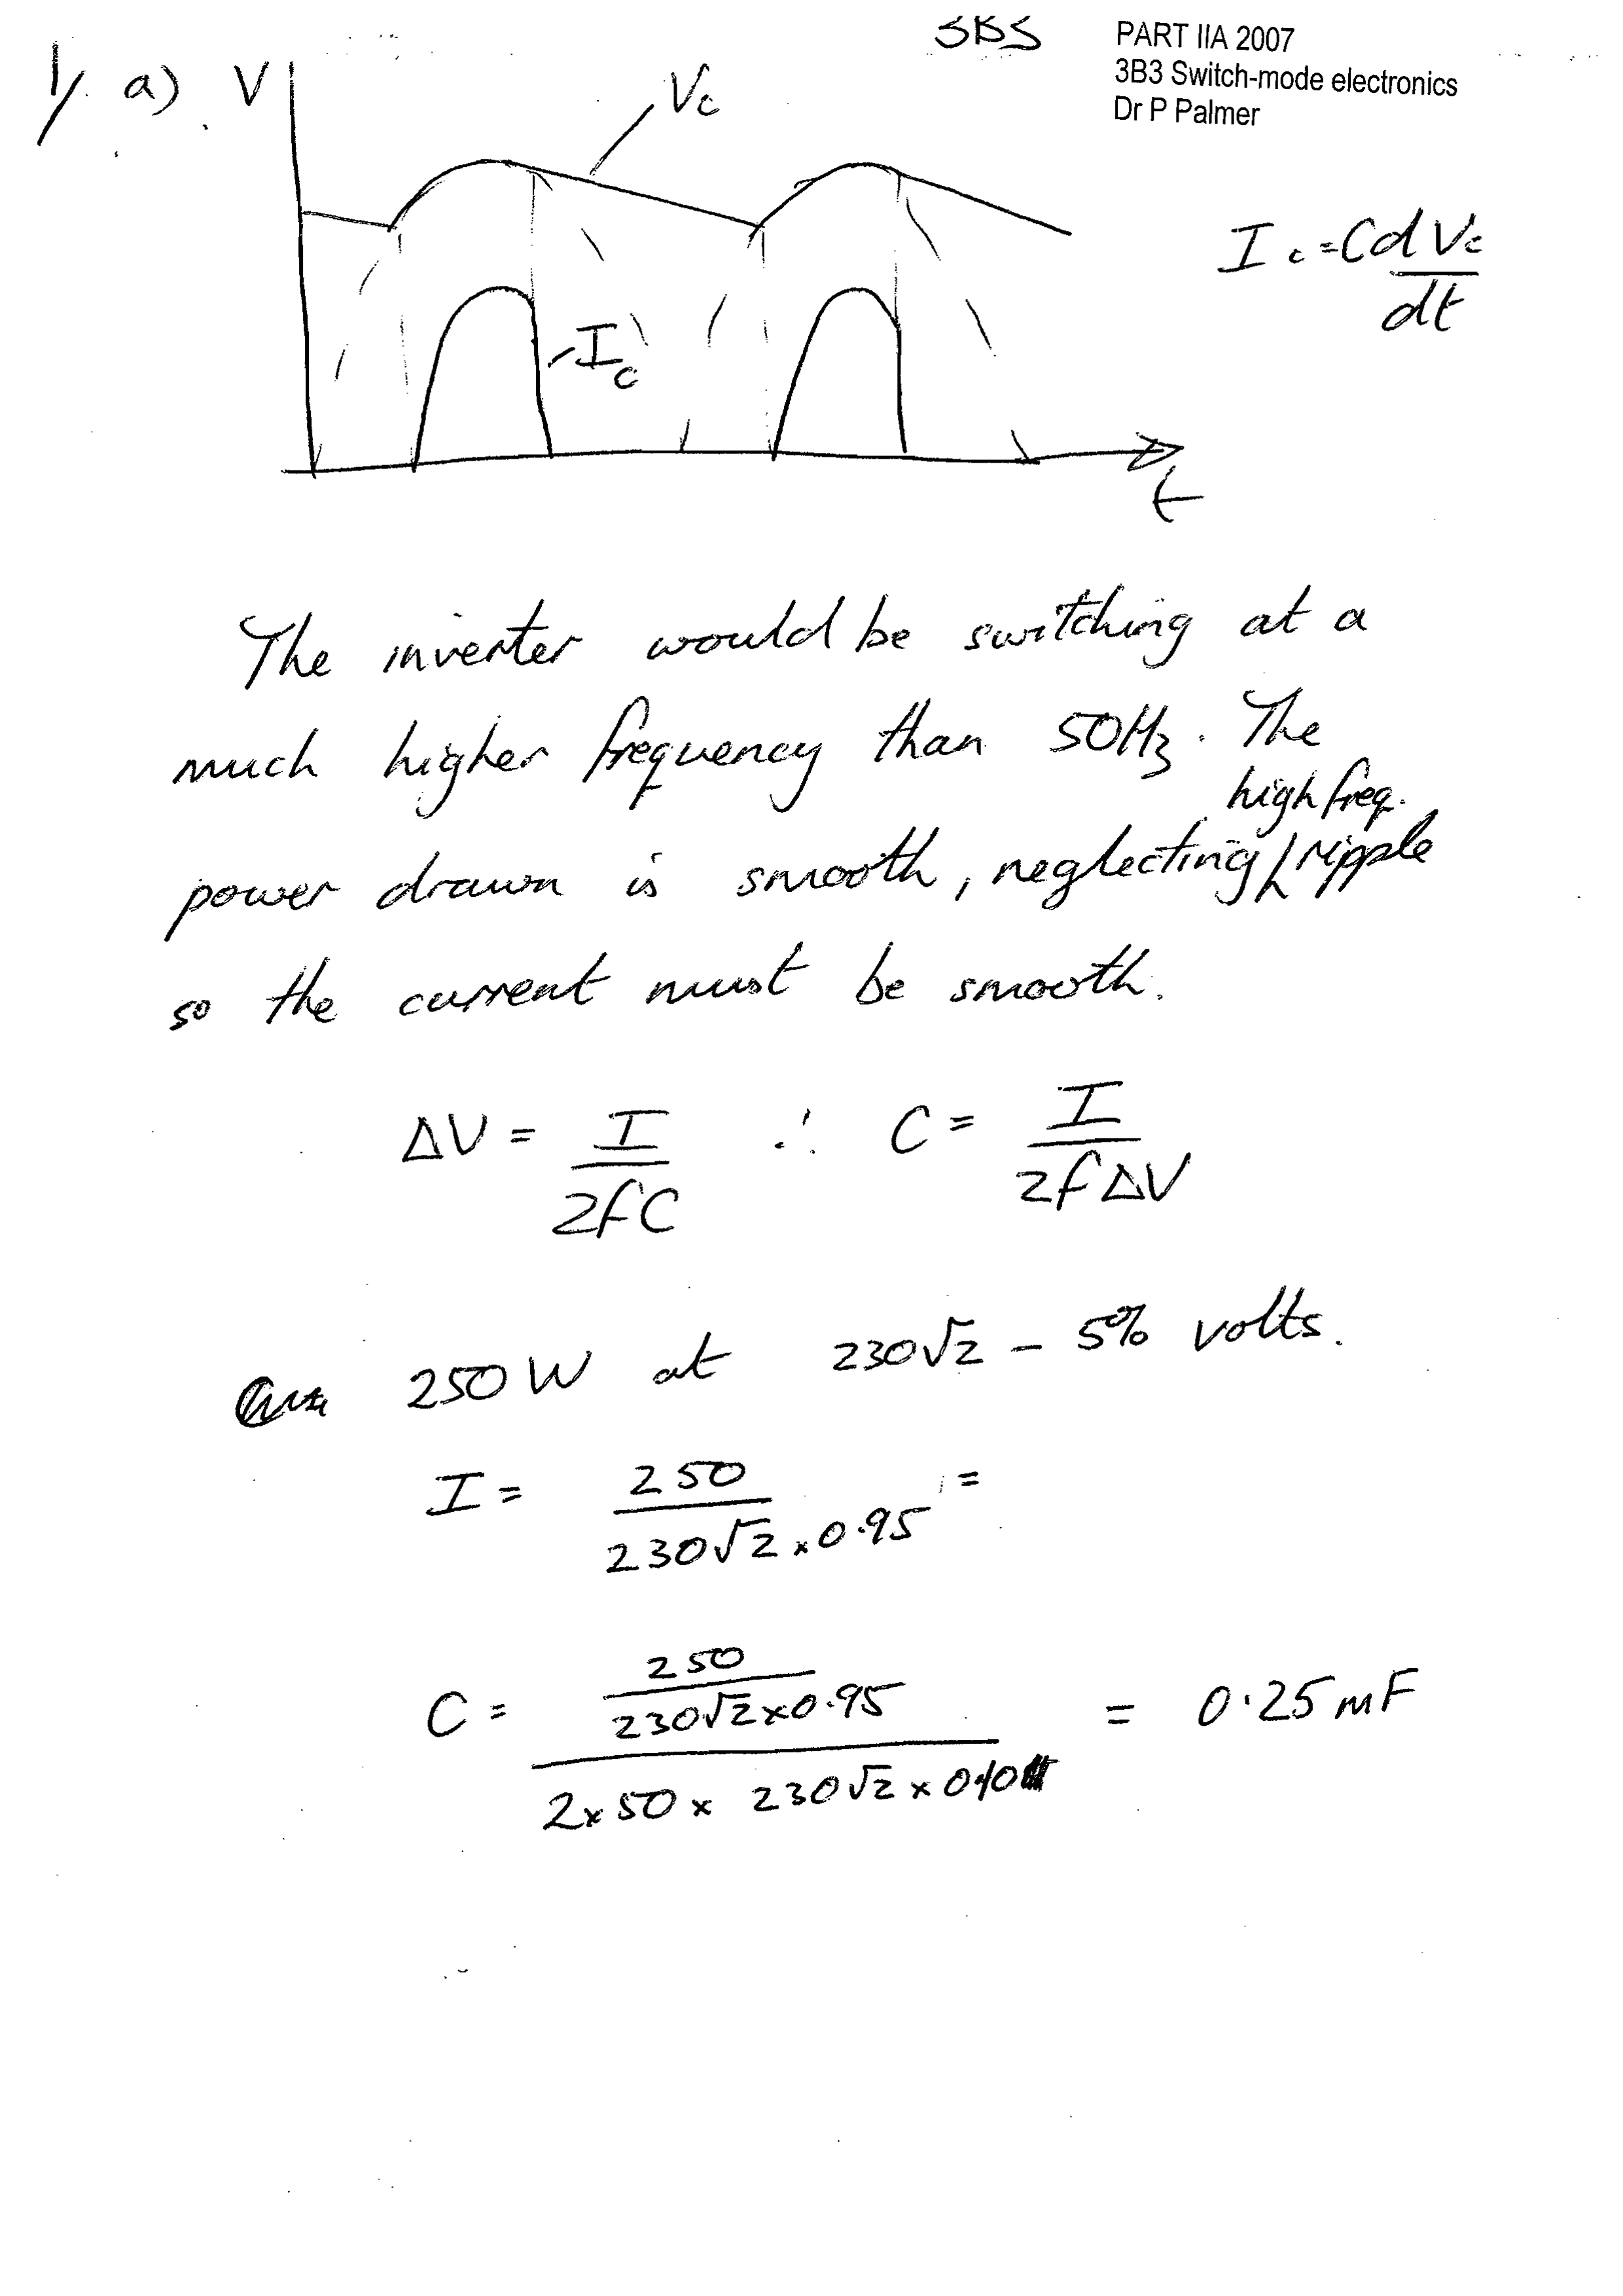 3B3
PART IIA 2007
3B3 Switch-mode electronics
Dr P Palmer
1/. a) V
Vc
Ic = C dVc/dt
Ic
t
The inverter would be switching at a
much higher frequency than 50Hz. The
high freq.
power drawn is smooth, neglecting ripple
so the current must be smooth.
ΔV = I/2fC ∴ C = I/2fΔV
250 W at 230√2 - 5% volts.
I = 250/230√2 × 0.95 =
C = 250/230√2×0.95 / 2×50× 230√2 × 0.10 = 0.25 mF